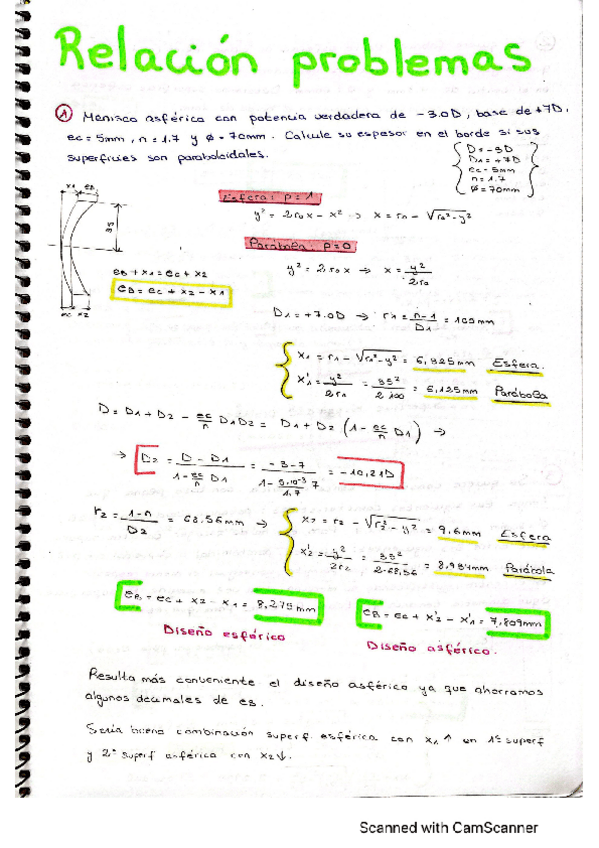 Relación problemas
① Menisco asférico con potencia verdadera de -3.0D, base de +7D,
ec = 5mm, n = 1.7 y ø = 70mm. Calcule su espesor en el borde si sus
superficies son paraboloidales.
D = -3D
D1 = +7D
ec = 5mm
n = 1.7
ø = 70mm
x1 eB
35
ec x2
Esfera: p = 1
y² = 2r0x - x² ⇒ x = r0 - √r0²-y²
Parábola: p = 0
y² = 2r0x → x = y²/2r0
eB + x1 = ec + x2
eB = ec + x2 - x1
D1 = +7.0D → r1 = n-1/D1 = 100mm
x1 = r1 - √r1²-y² = 6,325mm Esfera.
x1' = y²/2r1 = 35²/2·100 = 6,125mm Parábola
D = D1 + D2 - ec/n D1D2 = D1 + D2 (1 - ec/n D1) →
→ D2 = D - D1/1 - ec/n D1 = -3-7/1 - 5·10⁻³/1.7 7 = -10,21D
r2 = 1-n/D2 = 68,56mm → x2 = r2 - √r2²-y² = 9,6mm Esfera
x2' = y²/2r2 = 35²/2·68,56 = 8,934mm Parábola
eB = ec + x2 - x1 = 8,275mm
Diseño esférico
eB = ec + x2' - x1' = 7,809mm
Diseño asférico.
Resulta más conveniente el diseño asférico ya que ahorramos
algunos decimales de eB.
Sería buena combinación superf. esférica con x1 ↑ en 1ª superf
y 2ª superf asférica con x2↓.
Scanned with CamScanner